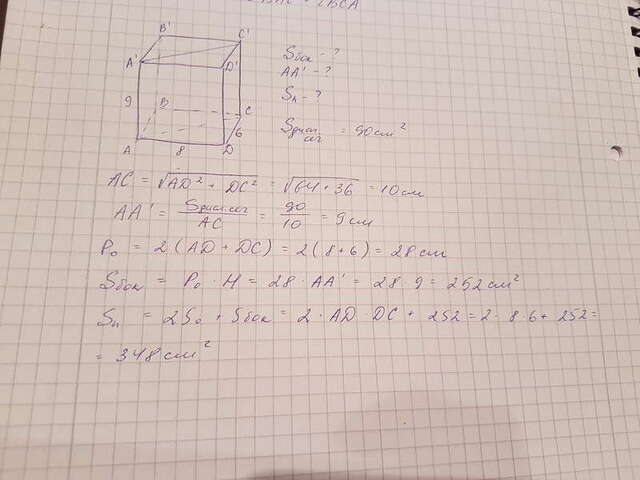 B' C'
A' D'
9 B C
6
A 8 D
Sбок - ?
AA' - ?
Sп - ?
Sдиаг.сег = 90 см²
AC = √AD² + DC² = √64 + 36 = 10 см
AA' = Sдиаг.сег / AC = 90 / 10 = 9 см
Pо = 2(AD + DC) = 2(8+6) = 28 см
Sбок = Pо · H = 28 · AA' = 28 · 9 = 252 см²
Sп = 2Sо + Sбок = 2 · AD · DC + 252 = 2 · 8 · 6 + 252 =
= 348 см²